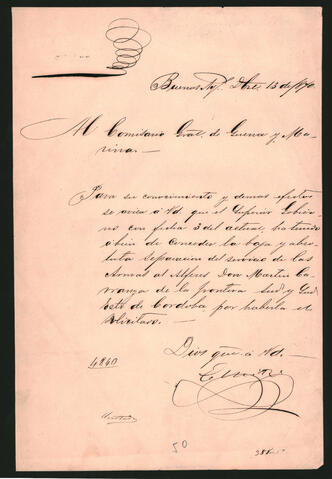 Buenos Ays. Dre. 13 de 1870
Al Comisario Gral. de Guerra y Ma-
rina.-
Para su conocimiento y demas efectos
se avisa á Vd. que el Superior Gobier-
no con fecha 3 del actual, ha tenido
á bien de conceder la baja y abso-
luta separacion del servicio de las
Armas al Alferez Don Martin Ca-
rranza de la frontera Sud y Sud
Este de Cordoba por haberla él
solicitado.
Dios gue. á Vd.
4840
50